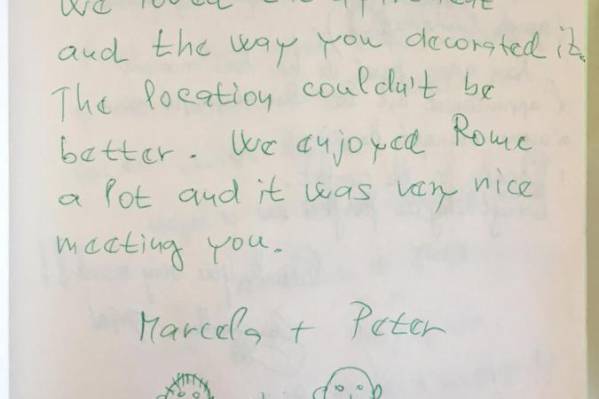 We loved the apartment
and the way you decorated it.
The location couldn't be
better. We enjoyed Rome
a lot and it was very nice
meeting you.
Marcela + Peter